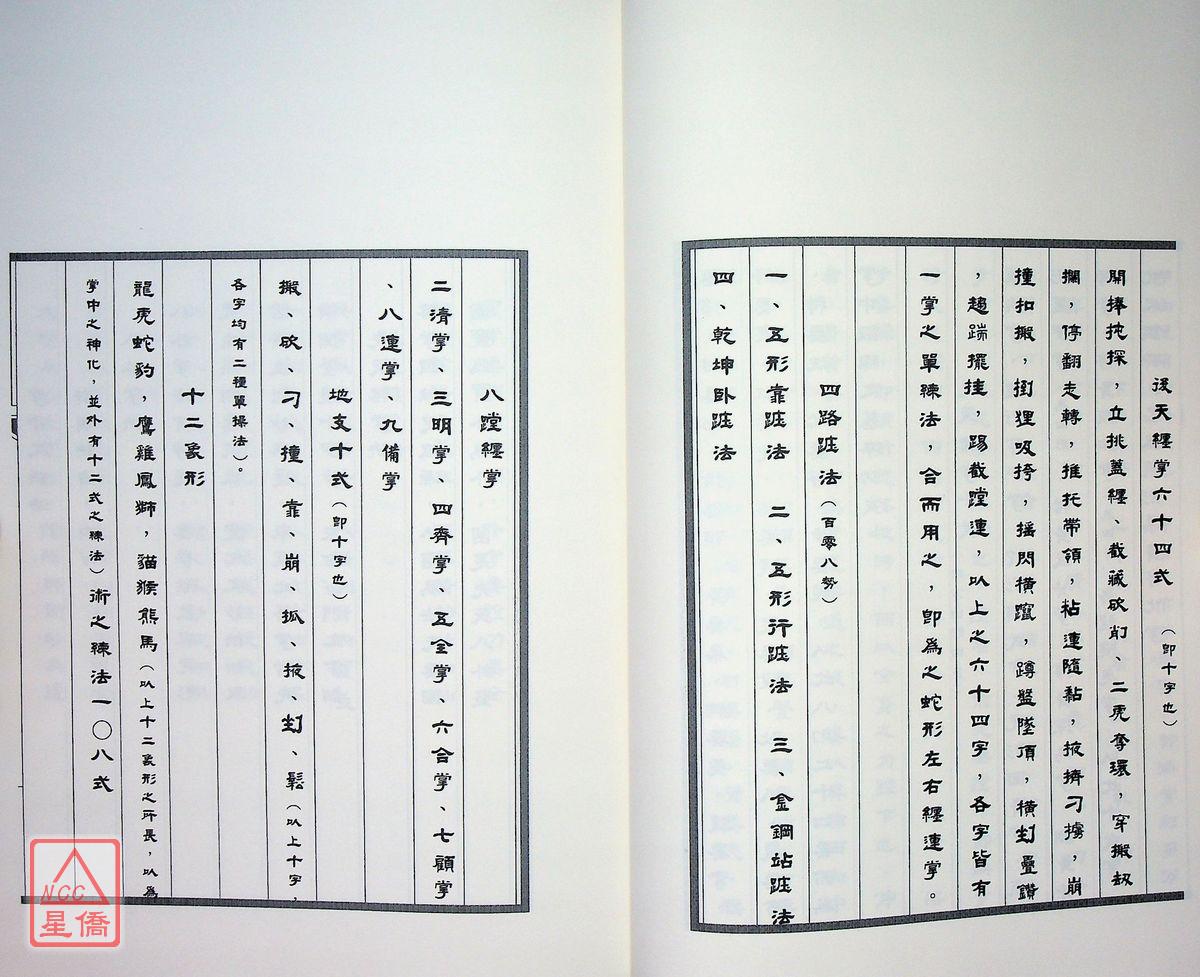 後天纏掌六十四式（即十字也）
開捧掩探，立挑蓋纏、截藏砍削　二虎奪環，穿搬刼
攔，停翻走轉，推托帶領，粘連隨黏，掖擠刁擄，崩
撞扣搬，狸吸挎，搖閃橫躥　蹲盤墜頂，橫疊鑽
，趟踹擺挂，踢截蹚連，以上之六十四字，各字皆有
一掌之單練法，合而用之，即爲之蛇形左右纏連掌。
四路跴法（百零八勢）
一、五形靠跴法　二、五形行跴法　三、金鋼站跴法
四、乾坤卧跴法
八蹚纏掌
二清掌、三明掌、四齊掌、五全掌、六合掌、七顧掌
、八連掌、九備掌
地支十式（即十字也）
搬、砍、刁、撞、靠、崩、抓、掖、、鬆（以上十字，
各字均有二種單操法）。
十二象形
龍虎蛇豹，鷹雞鳳獅，貓猴熊馬（以上十二象形之所長，以爲
掌中之神化，並外有十二式之練法）術之練法一〇八式
NCC
星僑